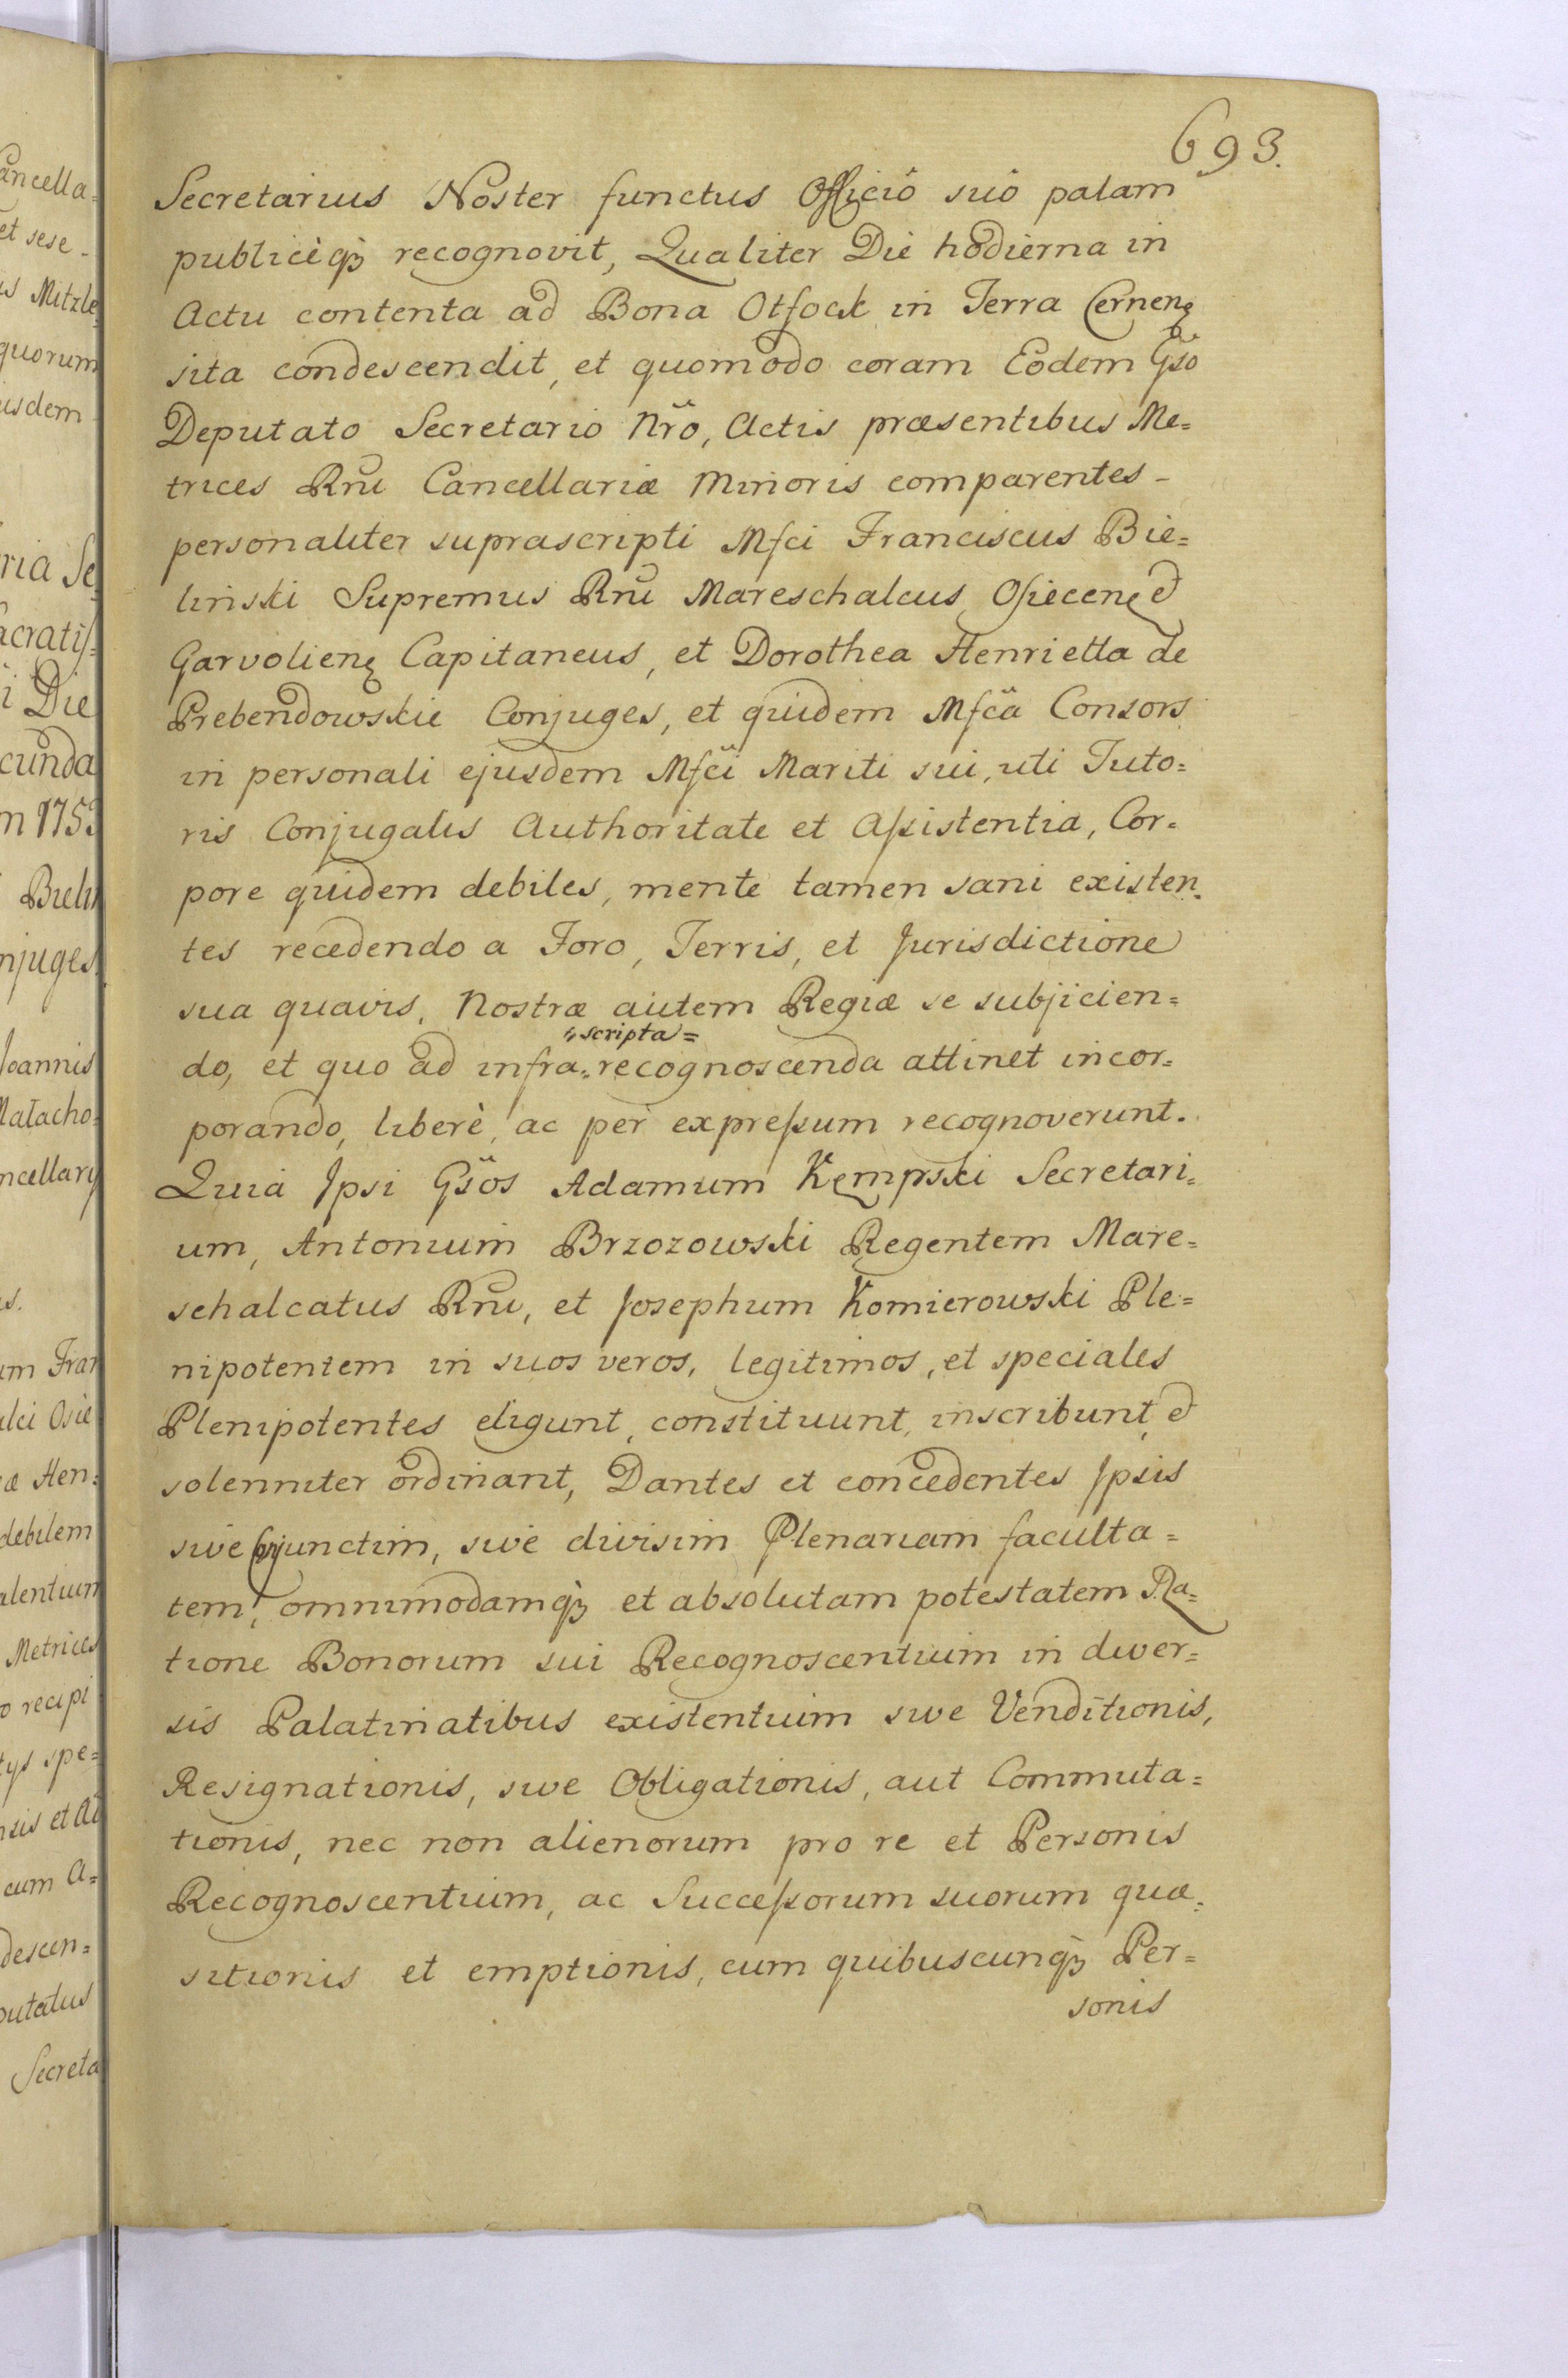 693.
Secretarius Noster functus Officiô suô palam
publicèq₃ recognovit, Qualiter Die hodierna in
Actu contenta ad Bona Otſock in Terra Cernenę
sita condescendit, et quomodo coram Eodem Gso
Deputato Secretario Nro, Actis præsentibus Me=
trices Rni Cancellariæ Minoris comparentes -
personaliter suprascripti Mfci Franciscus Bie=
linski Supremus Rni Mareschalcus Osiecenę et
Garvolienę Capitaneus, et Dorothea Henrietta de
Prebendowskie Conjuges, et quidem Mfca Consors
in personali ejusdem Mfci Mariti sui, uti Tuto=
ris Conjugalis Authoritate et Aſsistentia, Cor=
pore quidem debiles, mente tamen sani existen=
tes recedendo a Foro, Terris, et Jurisdictione
sua quavis, Nostræ autem Regiæ se subjicien=
scripta=
do, et quo ad infra=recognoscenda attinet incor=
porando, liberè, ac per expreſsum recognoverunt.
Quia Ipsi Gsos Adamum Kempski Secretari=
um, Antonium Brzozowski Regentem Mare=
schalcatus Rni, et Josephum Komierowski Ple=
nipotentem in suos veros, legitimos, et speciales
Plenipotentes eligunt, constituunt, inscribunt, et
solenniter ordinant, Dantes et concedentes Ipsis
sive conjunctim, sive divisim Plenariam faculta=
tem, omnimodamq₃ et absolutam potestatem Ra=
tione Bonorum sui Recognoscentium in diver=
sis Palatinatibus existentium sive Venditionis,
Resignationis, sive Obligationis, aut Commuta=
tionis, nec non alienorum pro re et Personis
Recognoscentium, ac Succeſsorum suorum quæ=
sitionis et emptionis, cum quibuscunq₃ Per=
sonis